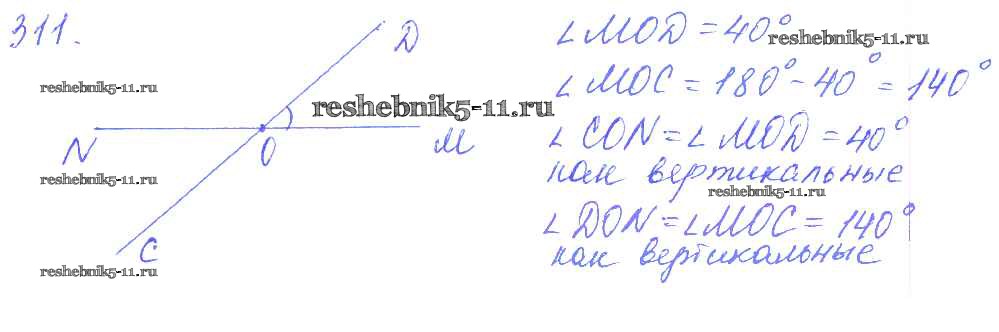 311.
D
N
O
M
C
∠MOD = 40°
∠MOC = 180° - 40° = 140°
∠CON = ∠MOD = 40°
как вертикальные
∠DON = ∠MOC = 140°
как вертикальные
reshebnik5-11.ru
reshebnik5-11.ru
reshebnik5-11.ru
reshebnik5-11.ru
reshebnik5-11.ru
reshebnik5-11.ru